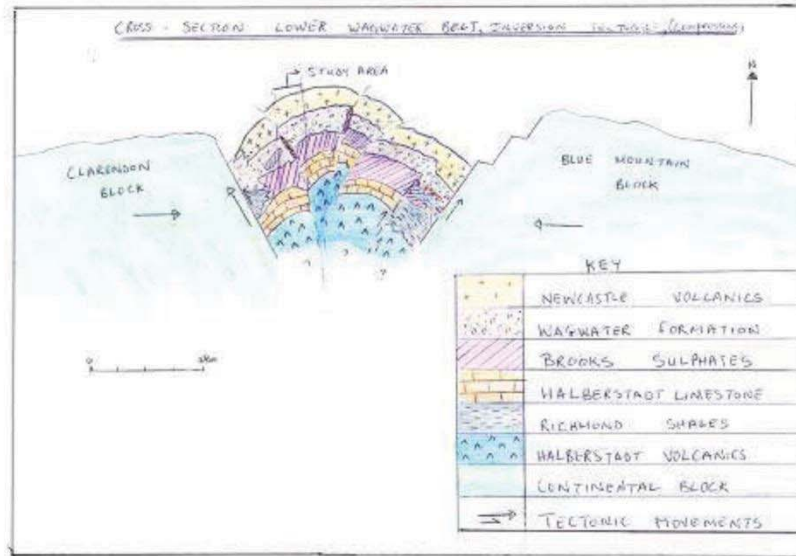 CROSS - SECTION LOWER WAGWATER BELT, INVERSION TECTONICS, (COMPRESSION)
STUDY AREA
N
CLARENDON
BLOCK
BLUE MOUNTAIN
BLOCK
? ?
KEY
NEWCASTLE VOLCANICS
WAGWATER FORMATION
BROOKS SULPHATES
HALBERSTADT LIMESTONE
RICHMOND SHALES
HALBERSTADT VOLCANICS
CONTINENTAL BLOCK
TECTONIC MOVEMENTS
0